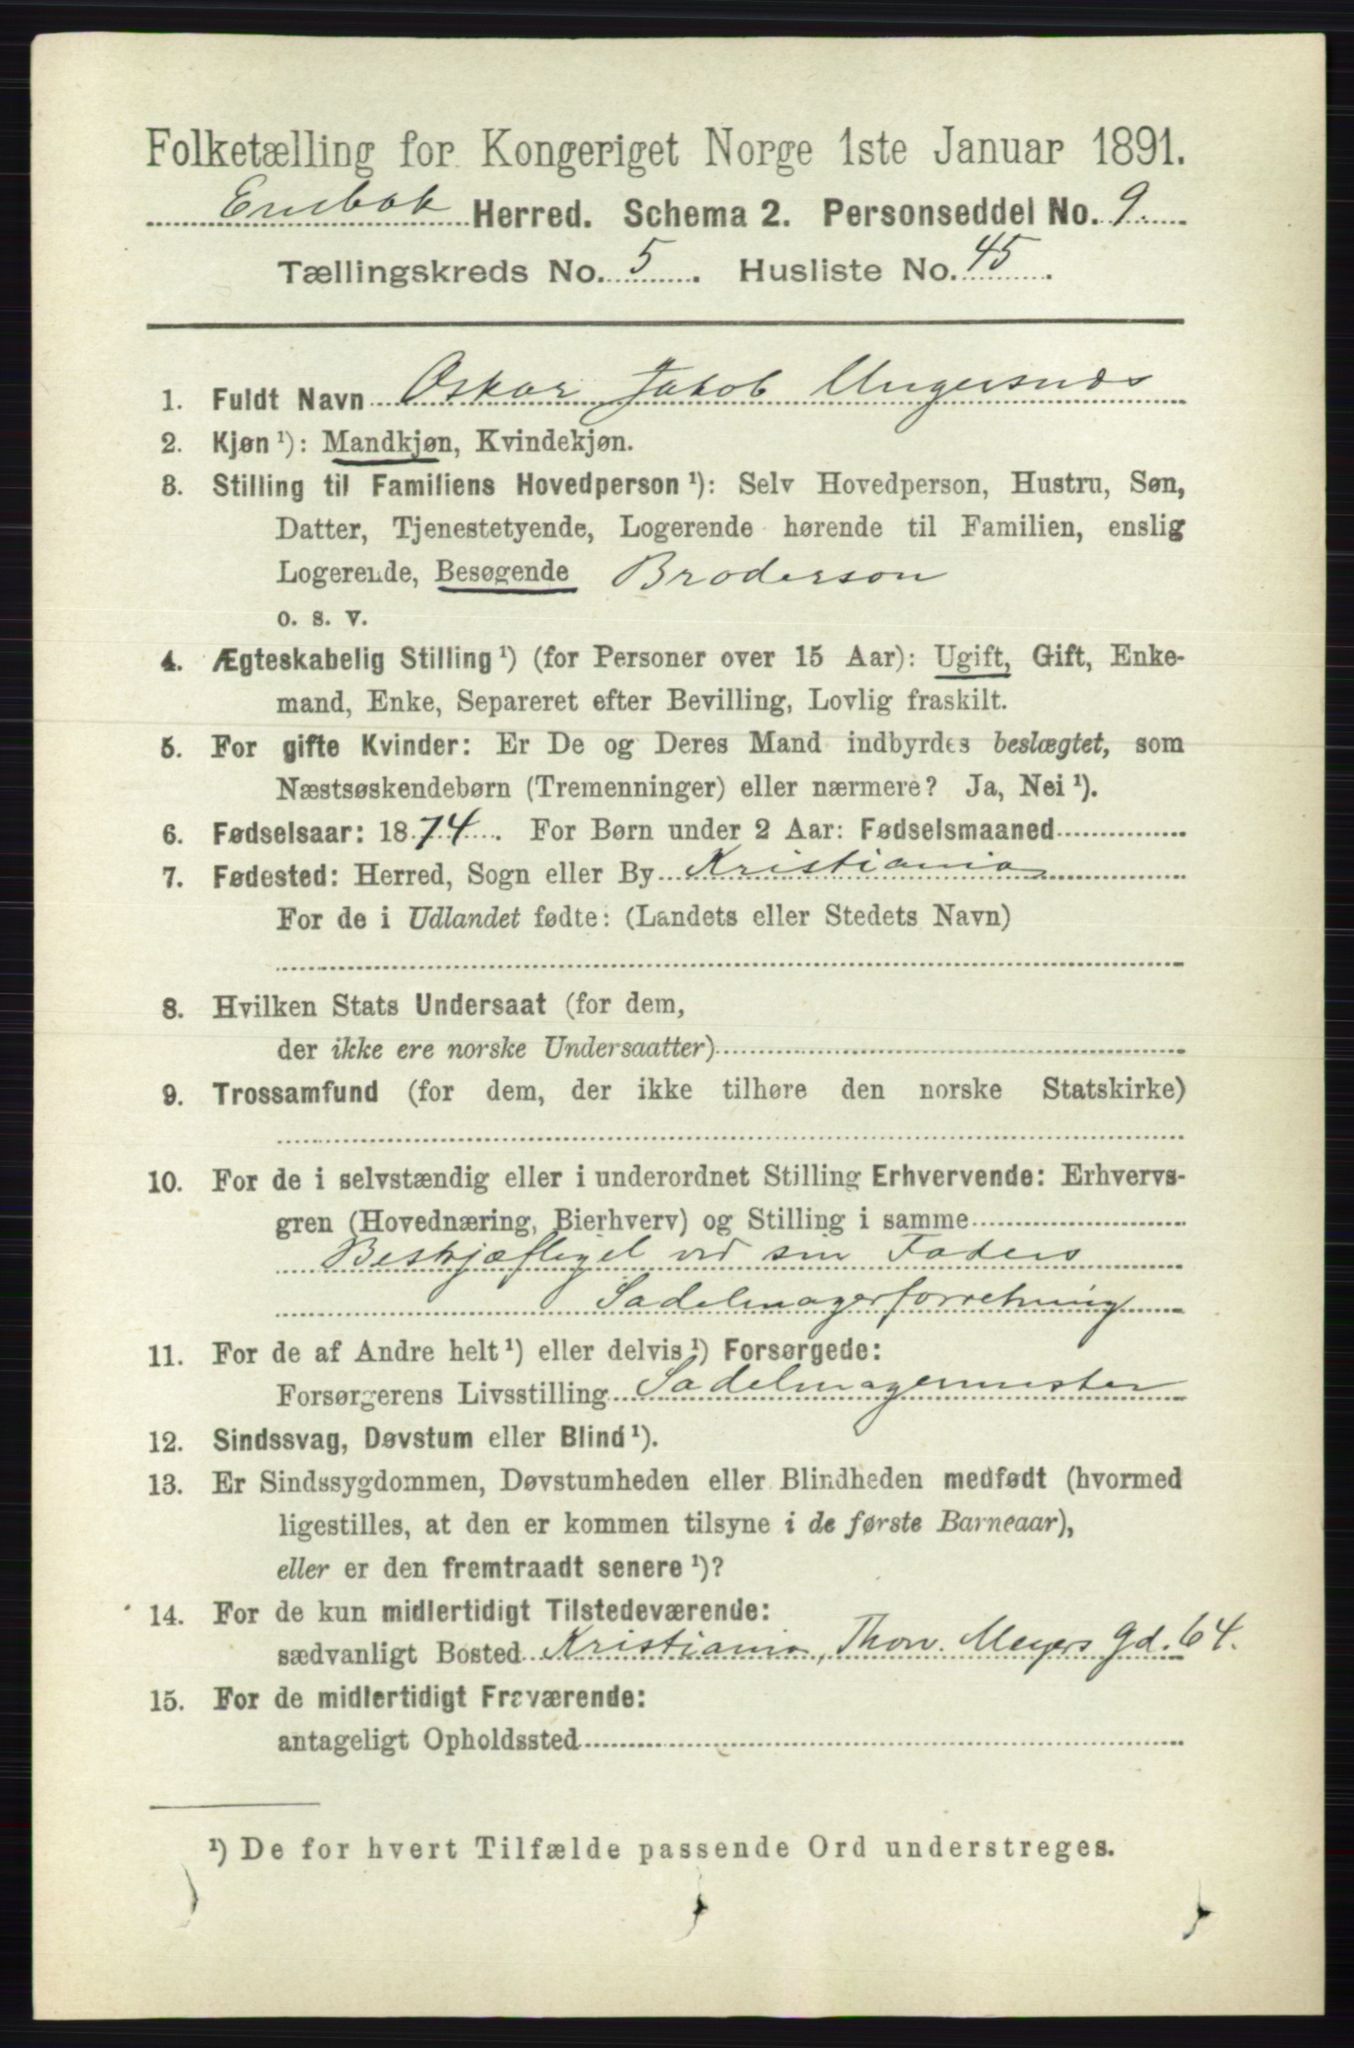 Folketælling for Kongeriget Norge 1ste Januar 1891.
Enebak Herred. Schema 2. Personseddel No. 9.
Tællingskreds No. 5. Husliste No. 45.
1. Fuldt Navn Oskar Jakob Ungersnæs
2. Kjøn ¹): Mandkjøn, Kvindekjøn.
3. Stilling til Familiens Hovedperson ¹): Selv Hovedperson, Hustru, Søn,
Datter, Tjenestetyende, Logerende hørende til Familien, enslig
Logerende, Besøgende Broderson
o. s. v.
4. Ægteskabelig Stilling ¹) (for Personer over 15 Aar): Ugift, Gift, Enke-
mand, Enke, Separeret efter Bevilling, Lovlig fraskilt.
5. For gifte Kvinder: Er De og Deres Mand indbyrdes beslægtet, som
Næstsøskendebørn (Tremenninger) eller nærmere? Ja, Nei ¹).
6. Fødselsaar: 1874. For Børn under 2 Aar: Fødselsmaaned
7. Fødested: Herred, Sogn eller By Kristiania
For de i Udlandet fødte: (Landets eller Stedets Navn)
8. Hvilken Stats Undersaat (for dem,
der ikke ere norske Undersaatter)
9. Trossamfund (for dem, der ikke tilhøre den norske Statskirke)
10. For de i selvstændig eller i underordnet Stilling Erhvervende: Erhvervs-
gren (Hovednæring, Bierhverv) og Stilling i samme
Beskjæftiget ved sin Faders
Sadelmagerforretning
11. For de af Andre helt ¹) eller delvis ¹) Forsørgede:
Forsørgerens Livsstilling Sadelmagermester
12. Sindssvag, Døvstum eller Blind ¹).
13. Er Sindssygdommen, Døvstumheden eller Blindheden medfødt (hvormed
ligestilles, at den er kommen tilsyne i de første Barneaar),
eller er den fremtraadt senere ¹)?
14. For de kun midlertidigt Tilstedeværende:
sædvanligt Bosted Kristiania, Thorv. Meyers gd. 64.
15. For de midlertidigt Fraværende:
antageligt Opholdssted
¹) De for hvert Tilfælde passende Ord understreges.